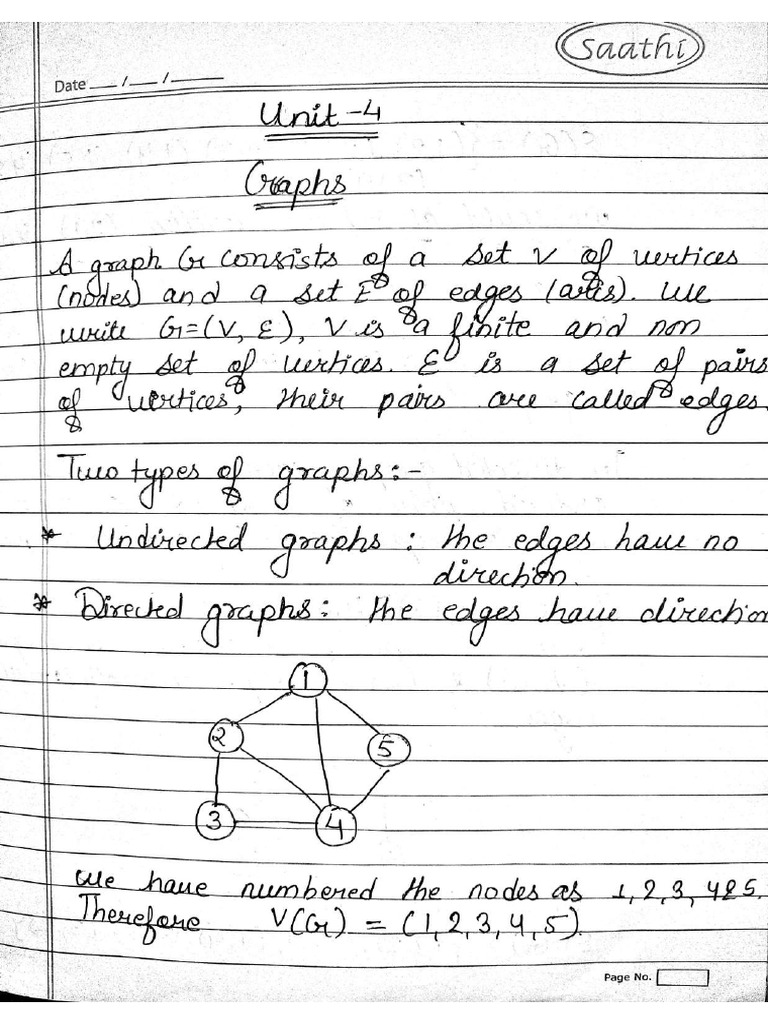 Saathi
Date __/__/____
Unit-4
Graphs
A graph G consists of a set V of vertices
(nodes) and a set E of edges (arcs). We
write G=(V, E), V is a finite and non
empty set of vertices. E is a set of pairs
of vertices, their pairs are called edges.
Two types of graphs:-
* Undirected graphs : the edges have no
direction.
* Directed graphs: the edges have direction
1
2
5
3
4
We have numbered the nodes as 1,2,3,4&5.
Therefore V(G) = (1,2,3,4,5).
Page No.